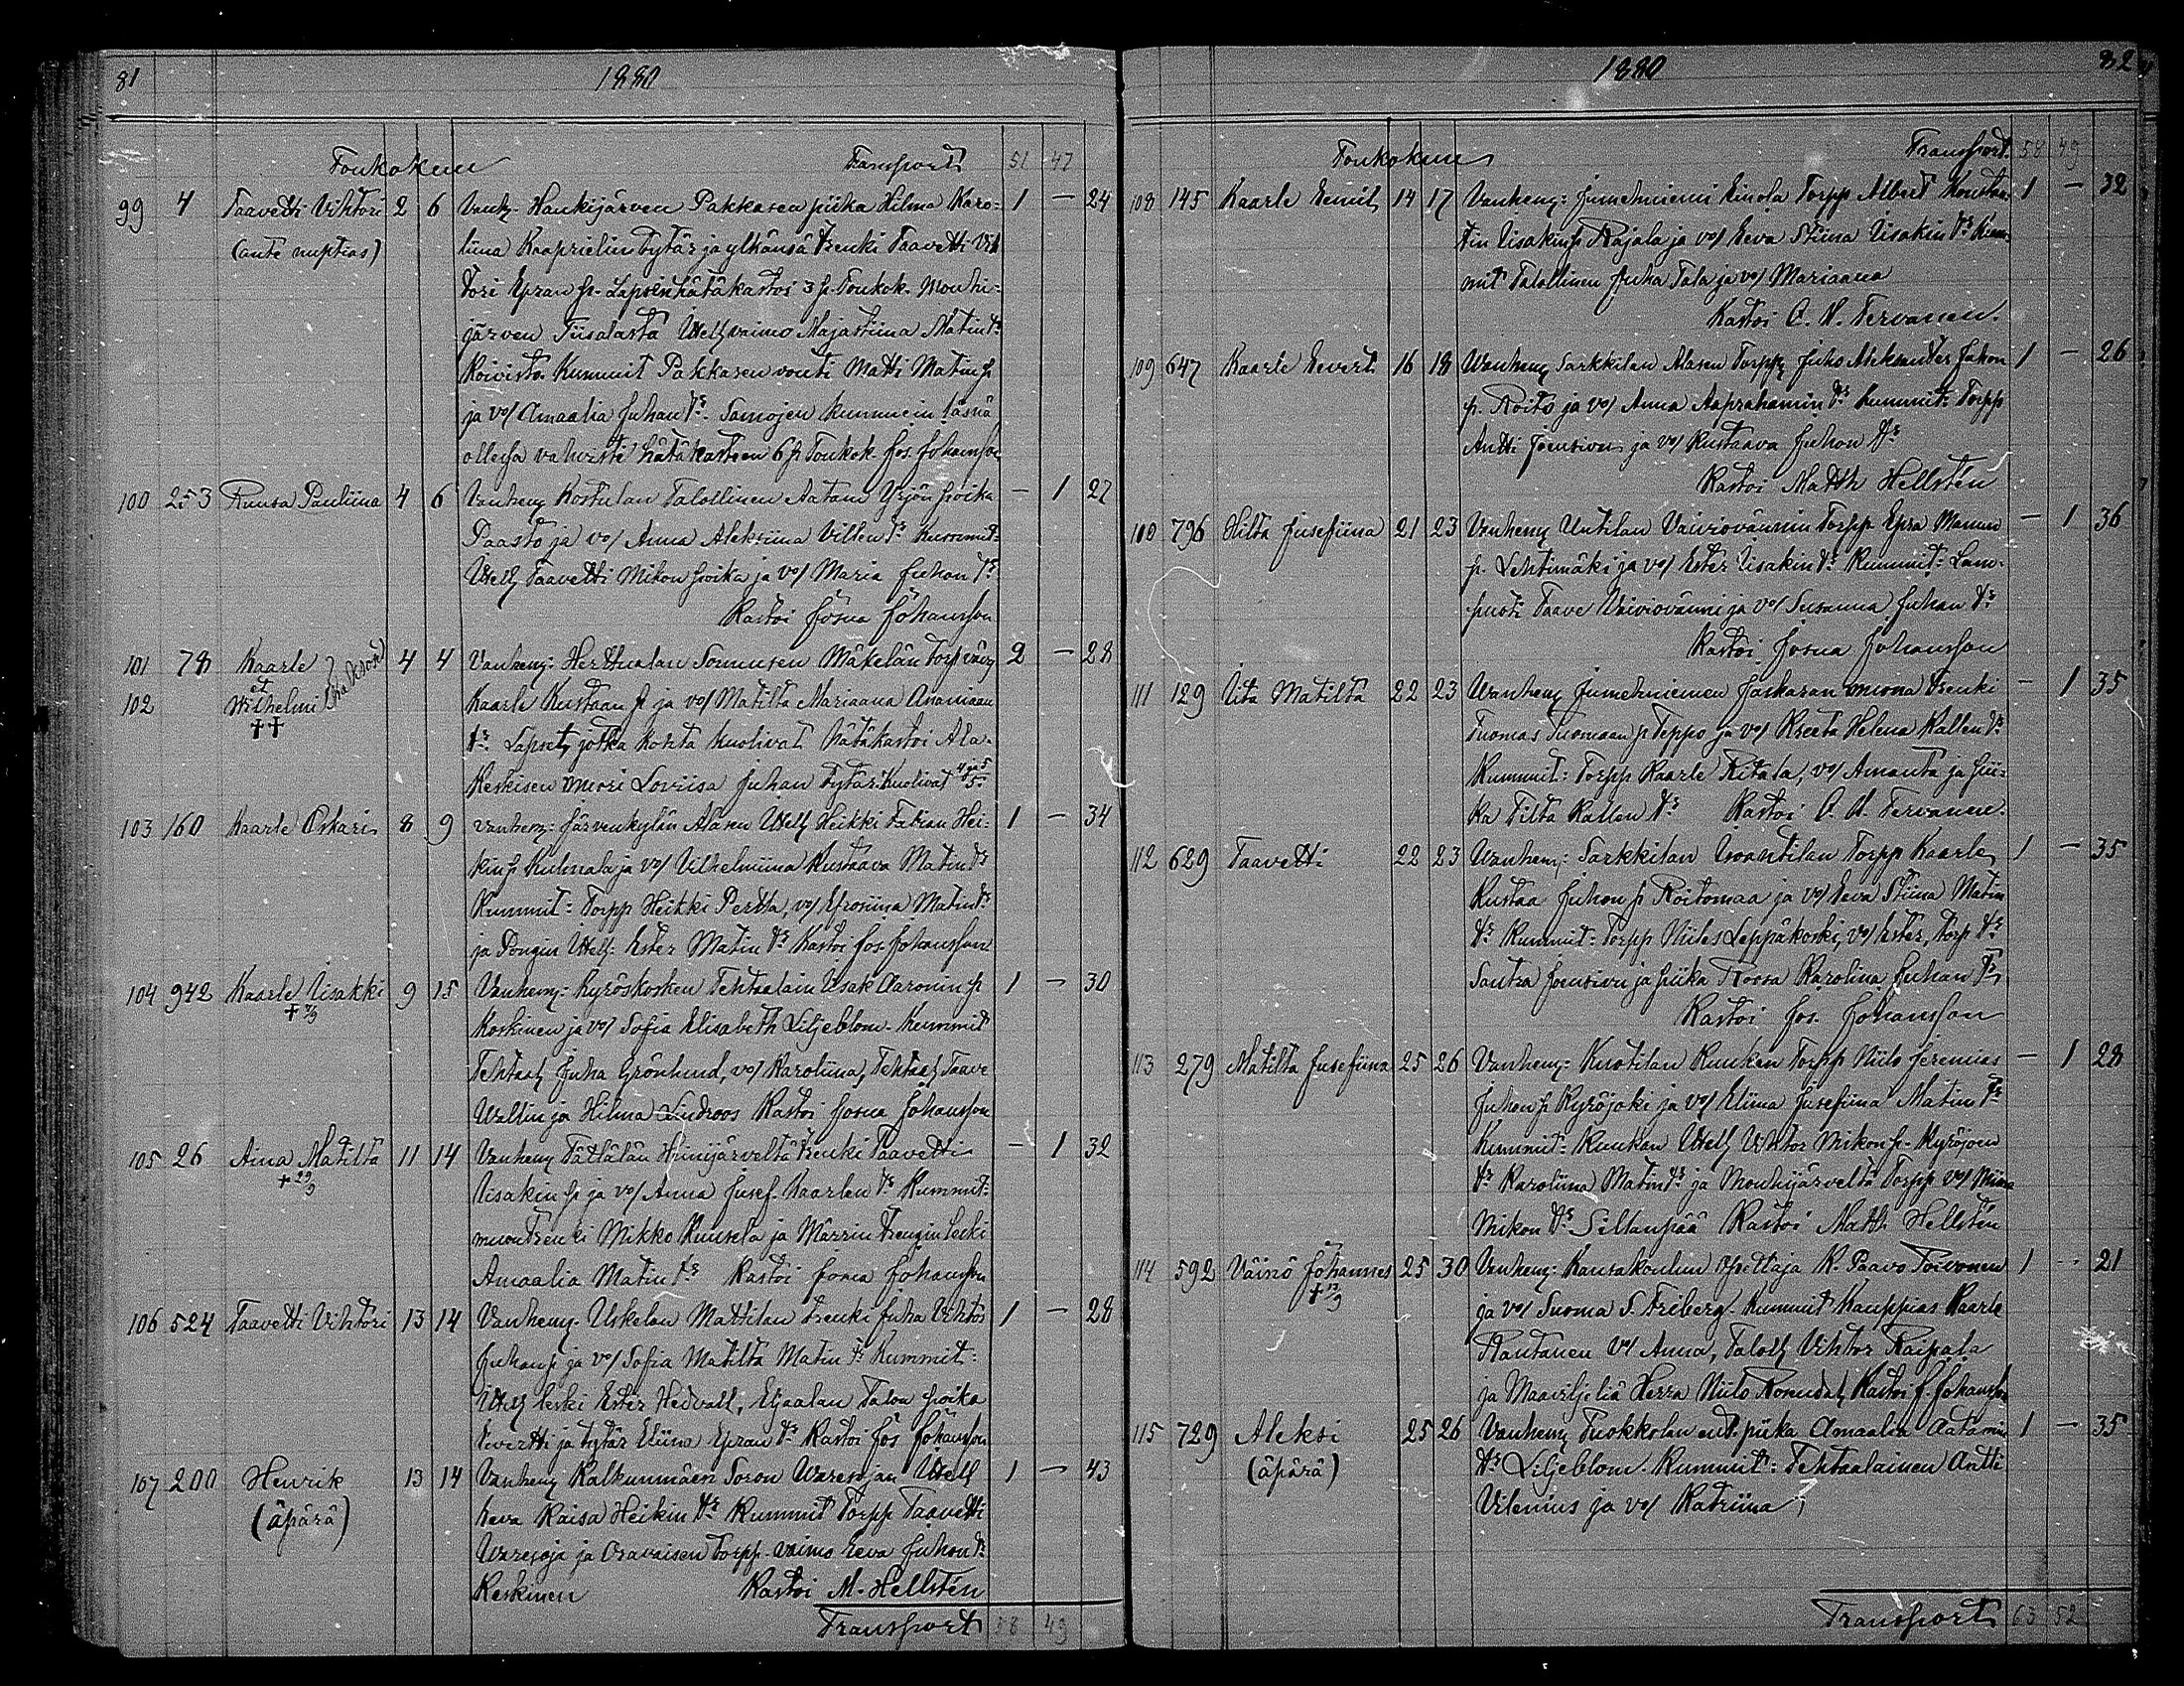 81 1880
Toukokuu Transport 51 47
99 4 Taavetti Vihtori 2 6 Vanh. Hankijärven Pakkasen piika Hilma Karo- 1 — 24
(ante nuptias) liina Kaaprielin tytär ja ylkänsä Trenki Taavetti Vih
tori Epran p. Lapsen hätäkastoi 3 p. Toukok. Mouhi-
järven Tiisalasta Itsell. vaimo Majastiina Matin tr
Koivisto. Kummit Pakkasen vouti Matti Matin p
ja vo/ Amaalia Juhan tr. Samojen kummein läsnä
ollessa vahvisti hätäkasteen 6 p Toukok. Jos. Johansson
100 253 Ruusa Pauliina 4 6 Vanhem. Kostulan Talollinen Aatam Yrjön poika — 1 27
Paasto ja vo/ Anna Aleksiina Villen tr Kummit-
Itsell. Taavetti Mikon poika ja vo/ Maria Juhon tr
Kastoi Josua Johansson
101 78 Kaarle 4 4 Vanhem: Herttualan Sonnusen Mäkelän torp. väv 2 — 28
102 et Wilhelmi (kaksoset) Kaarle Kustaan p ja vo/ Matilta Mariaana Ananiaan
†† tr. Lapset, jotka kohta kuolivat hätäkastoi Ala-
Keskisen muori Loviisa Juhan tytär. Kuolivat 4 ja 5/5
103 160 Kaarle Oskari 8 9 Vanhem: Järvenkylän Alasen Itsell. Heikki Fabian Hei- 1 — 34
kin p Kuhnala ja vo/ Vilhelmiina Kustaava Matin tr
Kummit: Torpp Heikki Pertta, vo/ Efrosiina Matin tr
ja Pongin Itsell: Ester Matin tr Kastoi Jos. Johansson
104 942 Kaarle Iisakki 9 15 Vanhem: Kyröskosken Tehtaalain Iisak Aaronin p 1 — 30
Koskinen ja vo/ Sofia Elisabeth Liljeblom. Kummit
Tehtaal. Juha Grönlund, vo/ Karoliina, Tehtaal. Taave
Wallin ja Hilma Lindroos Kastoi Josua Johansson
105 26 Aina Matilta 11 14 Vanhem Tättälän Hiinijärveltä Trenki Taavetti — 1 32
† 29/9 Iisakin p ja vo/ Anna Josef. Kaarlen tr Kummit:
muon Trenki Mikko Kuusela ja Märrin Trengin leski
Amaalia Matin tr Kastoi Josua Johansson
106 524 Taavetti Vihtori 13 14 Vanhem. Uskelan Mattilan Trenki Juha Vihtor 1 — 28
Juhan p ja vo/ Sofia Matilta Matin tr Kummit:
Itsell leski Ester Hedvall, Eljaalan Talon poika
Evertti ja tytär Eliina Epran tr Kastoi Jos Johansson
107 200 Henrik 13 14 Vanhem Kalkunmäen Soron Waresojan Itsell 1 — 43
(äpärä) Eeva Kaisa Heikin tr Kummit Torpp Taavetti
Waresoja ja Oravaisen torpp. vaimo Eeva Juhon tr
Keskinen Kastoi M. Hellstén
Transport 58 49
1880 82
Toukokuu Transport. 58 49
108 145 Kaarle Eemil 14 17 Vanhem: Jumesniemi Einola Torpp Albert Konstan- 1 — 32
tin Iisakin p Rajala ja vo/ Eeva Stiina Iisakin tr Kum-
mit Talollinen Juha Tala ja vo/ Mariaana
Kastoi C. V. Tervanen.
109 647 Kaarle Eevert 16 18 Vanhem Sarkkilan Alasen Torpp. Juho Aleksanter Juhon 1 — 26
p. Koito ja vo/ Anna Aaprahamin tr Kummit: Torpp
Antti Joensivu ja vo/ Kustaava Juhon tr
Kastoi Matth Hellstén
110 796 Hilta Jusefiina 21 23 Vanhem Untilan Vaiviovännin Torpp Epra Manun — 1 36
p. Lehtimäki ja vo/ Ester Iisakin tr Kummit: Lam-
puoti Taave Vaiviovänni ja vo/ Susanna Juhan tr
Kastoi Josua Johansson
111 129 Iita Matilta 22 23 Vanhem Jumesniemen Jaskaran muona Trenki — 1 35
Tuomas Tuomaan p Teppo ja vo/ Kreeta Helena Kallen tr
Kummit: Torpp Kaarle Ritala, vo/ Amanta ja pii-
ka Tilta Kallen tr Kastoi C. V. Tervanen.
112 629 Taavetti 22 23 Vanhem: Sarkkilan Uoantilan Torpp Kaarle 1 — 35
Kustaa Juhon p Koitomaa ja vo/ Eeva Stiina Matin
tr Kummit: Torpp Niiles Leppäkoski, vo/ Ester, Torp tr
Santra Joensivu ja piika Roosa Karolina Juhan tr
Kastoi Jos. Johansson
113 279 Matilta Jusefiina 25 26 Vanhem: Kuotilan Kuukan Torpp Niilo Jeremias — 1 28
Juhon p Kyröjoki ja vo/ Eliina Jusefiina Matin tr
Kummit: Kuukan Itsell Vihtor Mikon p. Kyröjoen
tr Karoliina Matin tr ja Mouhijärveltä Torpp vo/ Miina
Mikon tr Siltanpää Kastoi Matth Hellstén
114 592 Väinö Johannes 25 30 Vanhem: Kansakoulun opettaja K. Paavo Toivonen 1 — 21
† ja vo/ Suoma S. Friberg. Kummit Kauppias Kaarle
Rautanen vo/ Anna, Taloll. Vihtor Raipala
ja Maaviljeliä Herra Niilo Rosendal, Kastoi J. Johansson
115 729 Aleksi 25 26 Vanhem Tuokkolan ent. piika Amaalia Aatamin 1 — 35
(äpärä) tr Liljeblom. Kummit: Tehtaalainen Antti
Vilenius ja vo/ Katriina
Transport 63 52